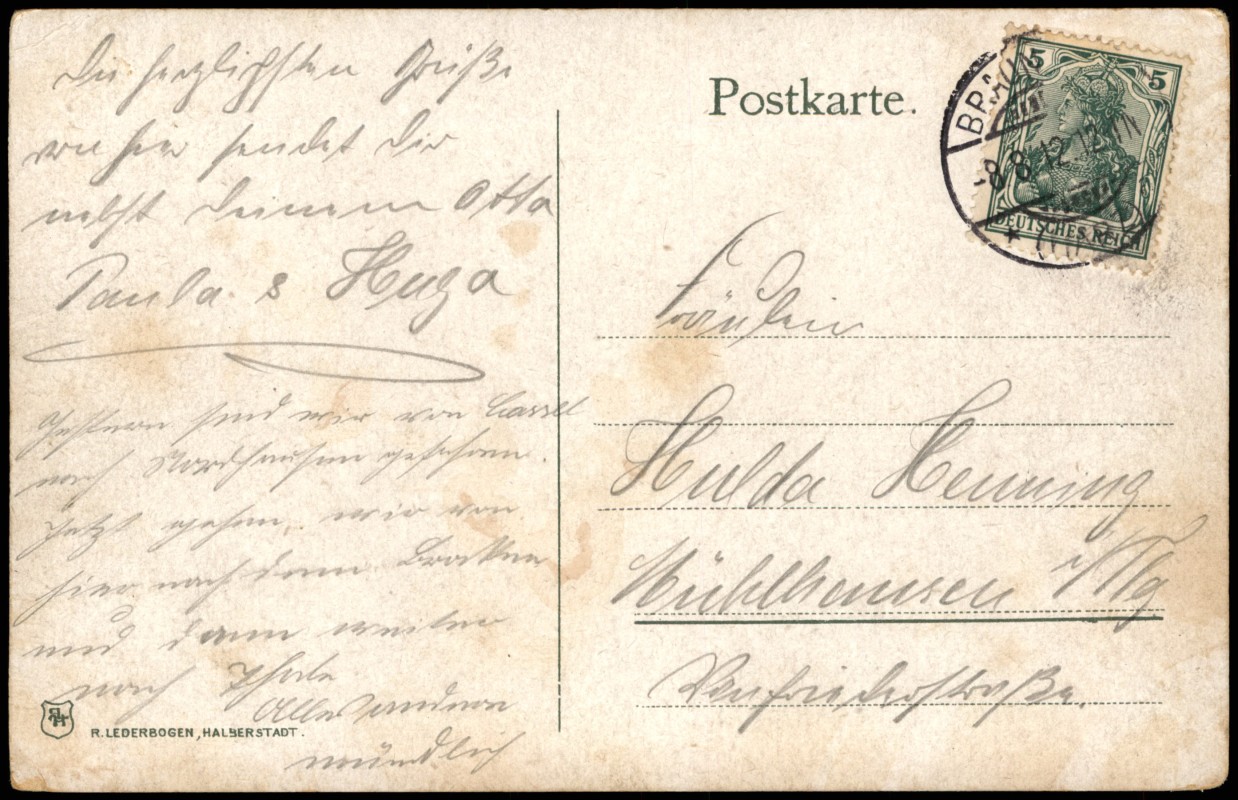 Die herzlichsten Grüße
von hier sendet Dir
nebst Deinem Otto
Paula & Hugo
Gestern sind wir von Cassel
nach Nordhausen gefahren.
Jetzt gehen wir von
hier nach dem Brocken
und dann weiter
nach Thale
Alles andere
mündlich
R. LEDERBOGEN, HALBERSTADT.
Postkarte.
5 5
DEUTSCHES REICH
-8.8.12.12
Fräulein
Hulda Henning
Mühlhausen i/Thg
Wanfriederstraße.